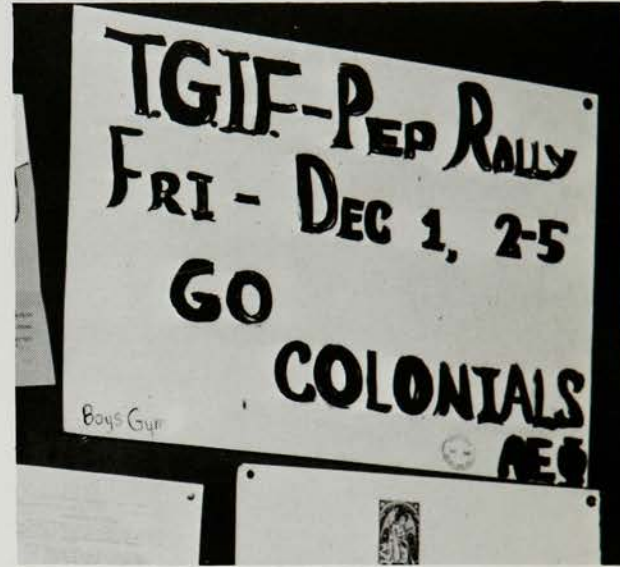 T.G.I.F.-PEP RALLY
FRI - DEC 1, 2-5
GO
COLONIALS
AEΦ
Boys Gym